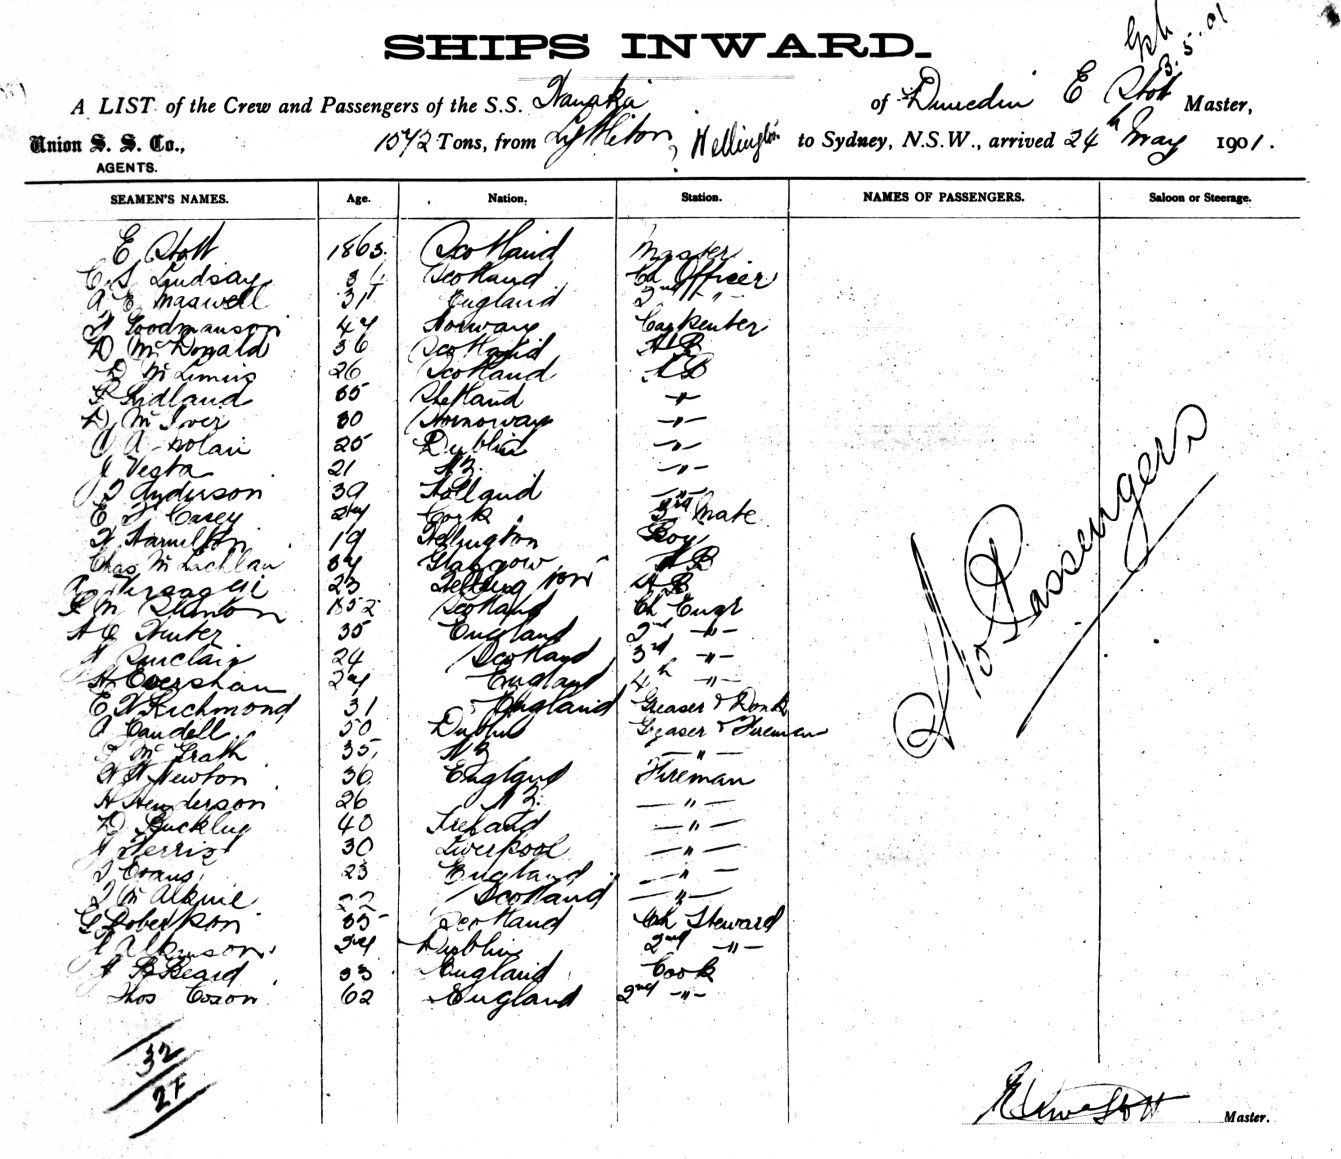 SHIPS INWARD.
3.5.01
A LIST of the Crew and Passengers of the S.S. Wanaka of Dunedin E Stott Master,
Union S. S. Co., 1572 Tons, from Lyttelton, Wellington to Sydney, N.S.W., arrived 24th May 1901.
AGENTS.
SEAMEN'S NAMES. Age. Nation. Station. NAMES OF PASSENGERS. Saloon or Steerage.
E Stott 1863 Scotland Master
C. S. Lindsay 34 Scotland Ch Officer
A E Maswell 31 England 2nd -"-
Goodmanson 47 Norway Carpenter
D McDonald 36 Scotland A B
D Mc 26 Scotland A B
Lidland 35 Shetland -"-
D McIver 30 Stornoway -"-
A Nolan 25 Dublin -"-
J Vesta 21 N Z -"-
Anderson 39 Holland -"-
E Casey 27 Cork 3rd Mate
W Hamilton 19 Wellington Boy
Chas McLachlan 37 Glasgow A B
23 A B
1852 Scotland Ch Engr
A E Hunter 35 England 2nd -"-
Sinclair 24 Scotland 3rd -"-
H Evershan 27 England 4th -"-
E W Richmond 31 England Greaser & Donk
A Caudell 50 Dublin Greaser & Fireman
McGrath 35 N Z -"-
Newton 36 England Fireman
H Henderson 26 N Z -"-
D Buckley 40 Ireland -"-
Ferris 30 Liverpool -"-
Evans 23 England -"-
22 Scotland -"-
G Robertson 35 Scotland Ch Steward
Atkinson 24 Dublin 2nd -"-
Beard 33 England Cook
Thos Coson 62 England 2nd -"-
No Passengers
32
27
Stott Master.